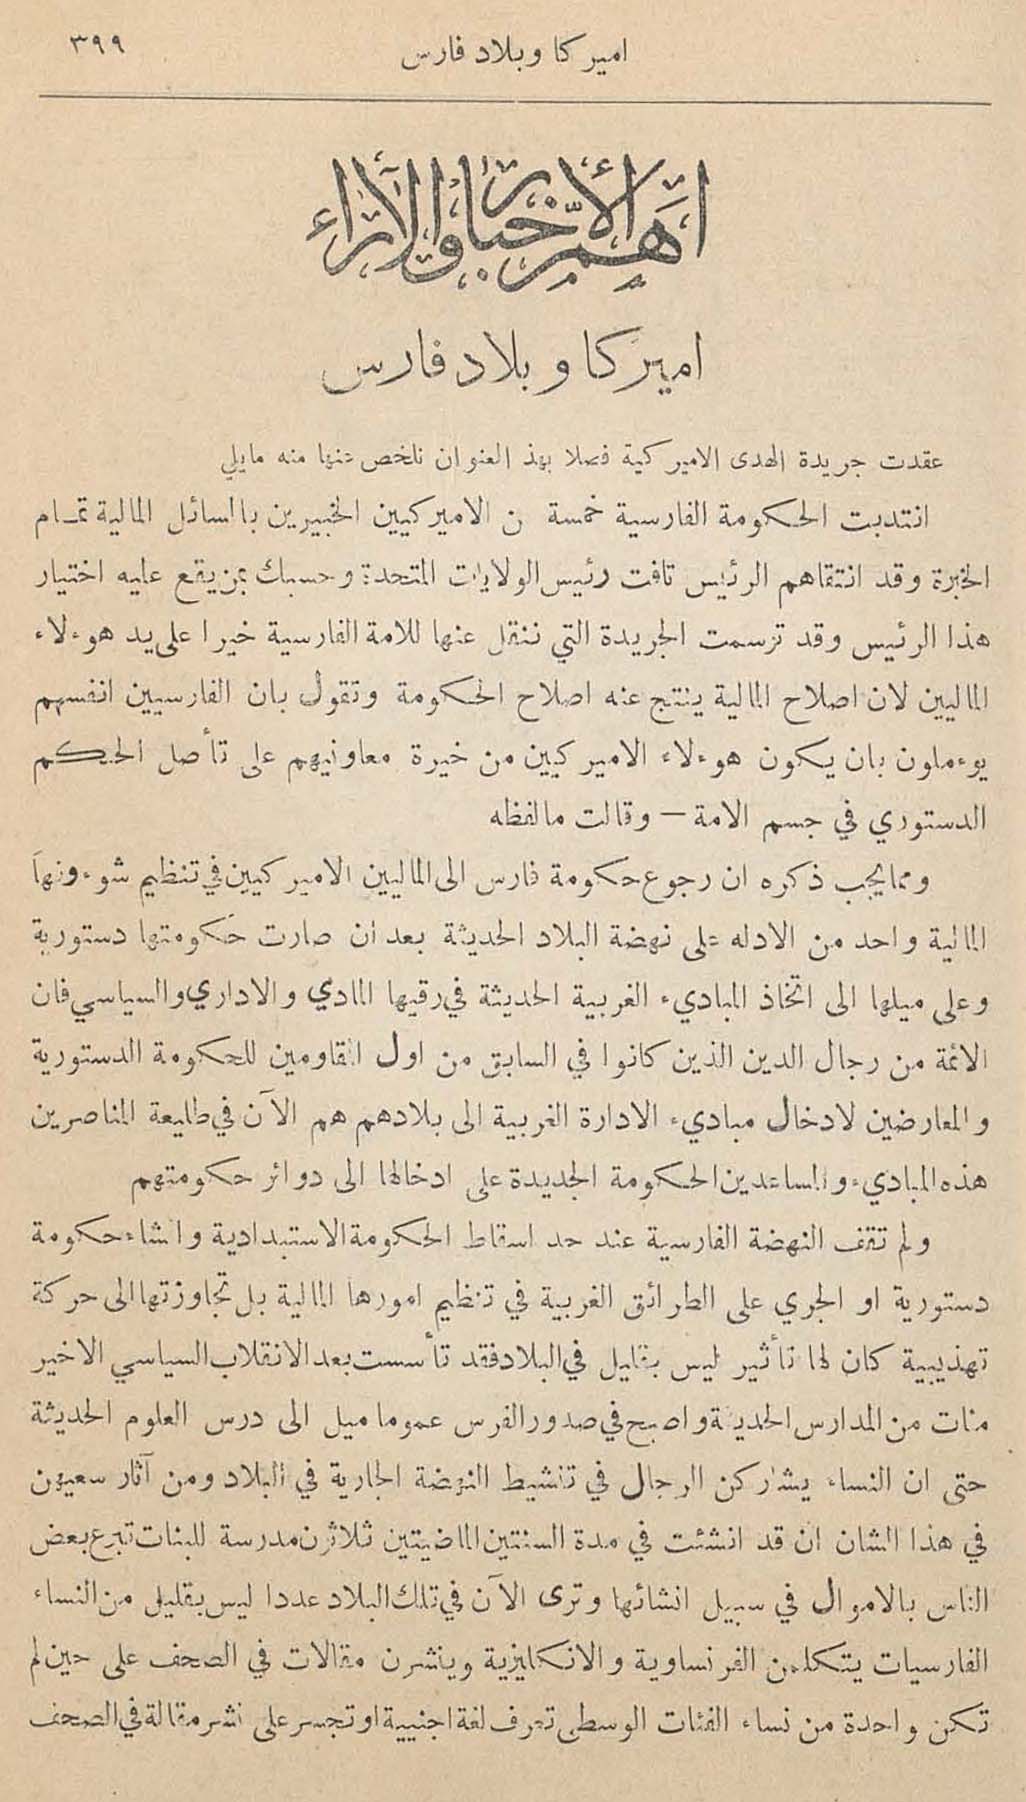 اميركا وبلاد فارس
٣٩٩
اهم الأخبار والآراء
اميركا وبلاد فارس
عقدت جريدة الهدى الاميركية فصلا بهذ العنوان نلخص عنها منه مايلي
انتدبت الحكومة الفارسية خمسة من الاميركيين الخبيرين بالسائل المالية تمام
الخبرة وقد انتقاهم الرئيس تافت رئيس الولايات المتحدة وحسبك بمن يقع عليه اختيار
هذا الرئيس وقد ترسمت الجريدة التي ننقل عنها للامة الفارسية خيرا على يد هوءلاء
الماليين لان اصلاح المالية ينتج عنه اصلاح الحكومة وتقول بان الفارسيين انفسهم
يوءملون بان يكون هوءلاء الاميركيين من خيرة معاونيهم على تأصل الحكم
الدستوري في جسم الامة — وقالت مالفظه
ومما يجب ذكره ان رجوع حكومة فارس الى الماليين الاميركيين في تنظيم شوءونها
المالية واحد من الادله على نهضة البلاد الحديثة بعد ان صارت حكومتها دستورية
وعلى ميلها الى اتخاذ المباديء الغربية الحديثة في رقيها المادي والاداري والسياسي فان
الائمة من رجال الدين الذين كانوا في السابق من اول المقاومين للحكومة الدستورية
والمعارضين لادخال مباديء الادارة الغربية الى بلادهم هم الآن في طليعة المناصرين
هذه المباديء والمساعدين الحكومة الجديدة على ادخالها الى دوائر حكومتهم
ولم تقف النهضة الفارسية عند حد اسقاط الحكومة الاستبدادية وانشاء حكومة
دستورية او الجري على الطرائق الغربية في تنظيم امورها المالية بل تجاوزتها الى حركة
تهذيبية كان لها تأثير ليس بقليل في البلاد فقد تأسست بعد الانقلاب السياسي الاخير
مئات من المدارس الحديثة واصبح في صدور الفرس عموما ميل الى درس العلوم الحديثة
حتى ان النساء يشاركن الرجال في تنشيط النهضة الجارية في البلاد ومن آثار سعيهن
في هذا الشان ان قد انشئت في مدة السنتين الماضيتين ثلاثون مدرسة للبنات تبرع بعض
الناس بالاموال في سبيل انشائها وترى الآن في تلك البلاد عددا ليس بقليل من النساء
الفارسيات يتكلمن الفرنساوية والانكليزية وينشرن مقالات في الصحف على حين لم
تكن واحدة من نساء الفئات الوسطى تعرف لغة اجنبية او تجسر على نشر مقالة في الصحف